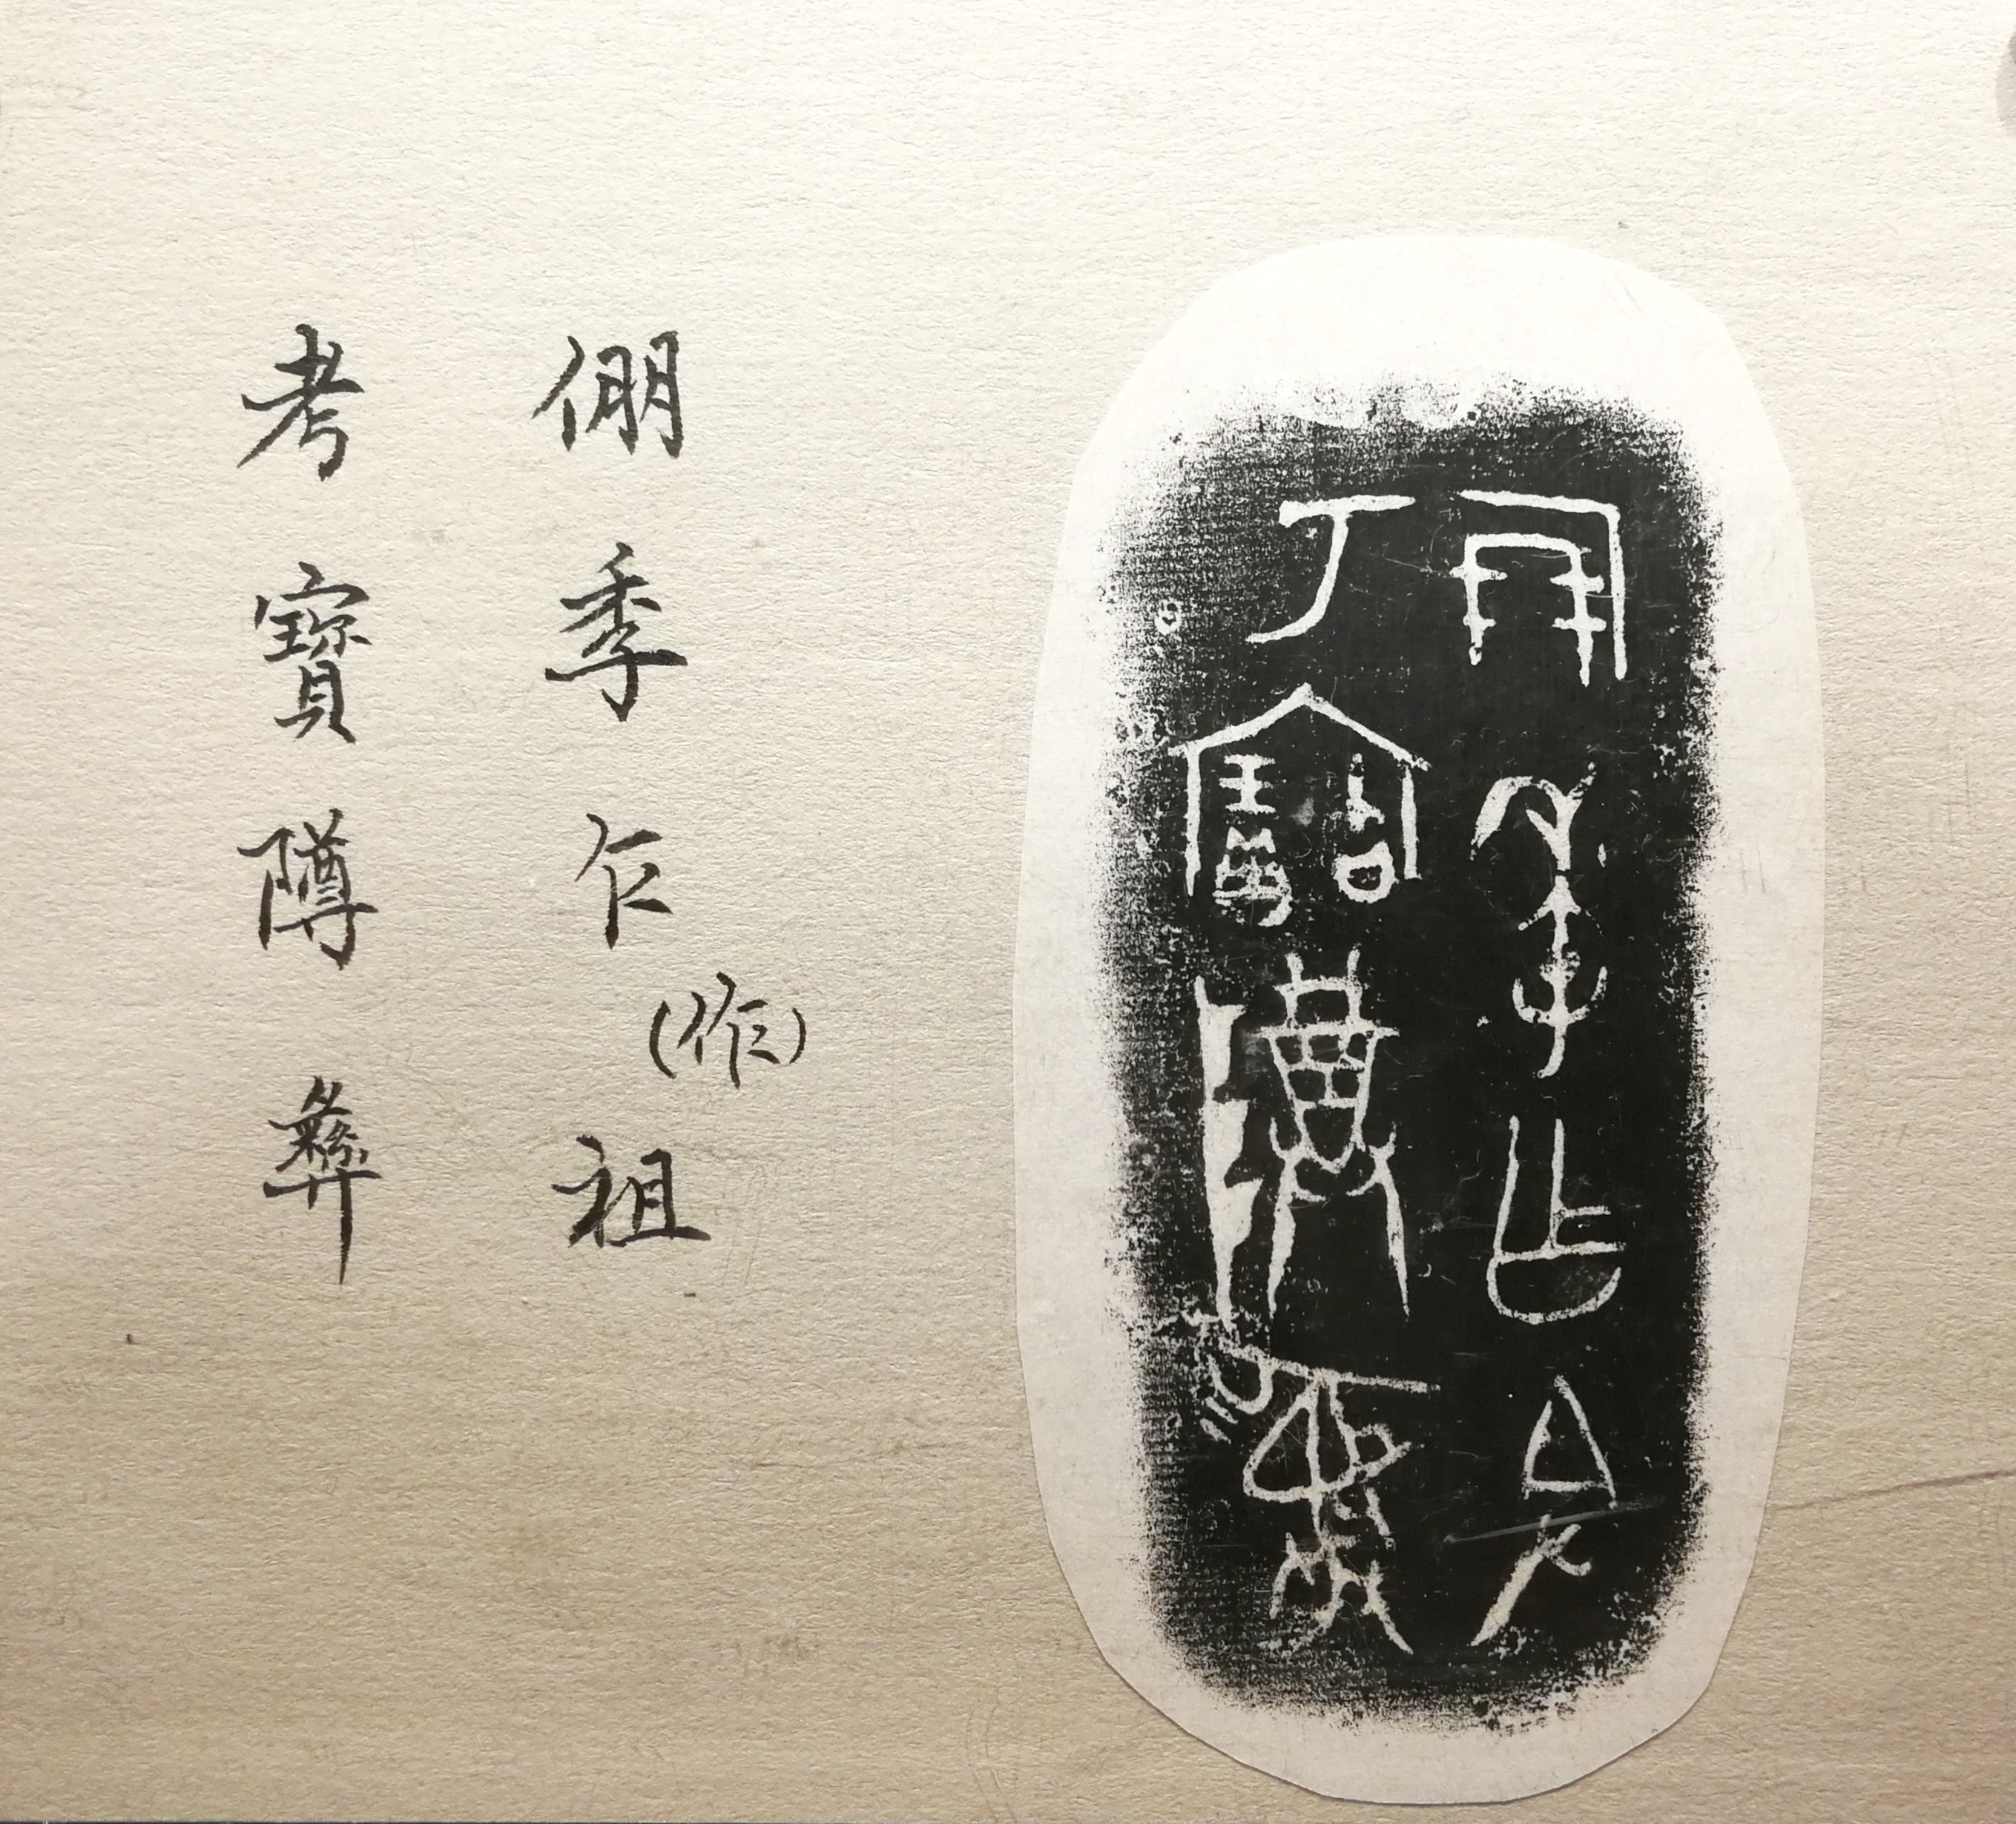 倗季乍(作)祖
考寶䵼彝